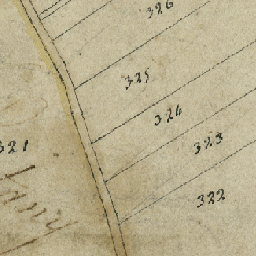 326
325
324
323
321
322